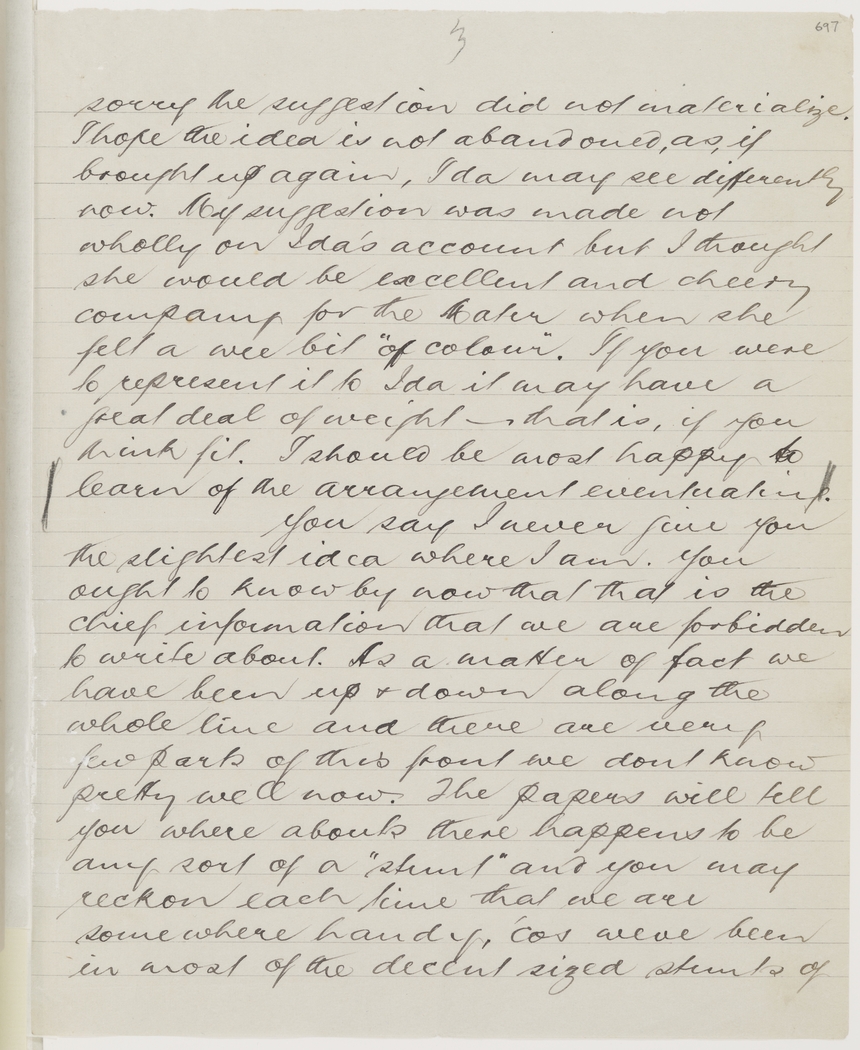 3
697
sorry the suggestion did not materialize.
I hope the idea is not abandoned, as, if
brought up again, Ida may see differently
now. My suggestion was made not
wholly on Ida's account but I thought
she would be excellent and cheery
company for the Mater when she
felt a wee bit "off colour". If you were
to represent it to Ida it may have a
great deal of weight — that is, if you
think fit. I should be most happy to
learn of the arrangement eventuating.
You say I never give you
the slightest idea where I am. You
ought to know by now that that is the
chief information that we are forbidden
to write about. As a matter of fact we
have been up & down along the
whole line and there are very
few parts of this front we dont know
pretty well now. The papers will tell
you where abouts there happens to be
any sort of a "stunt" and you may
reckon each time that we are
somewhere handy, 'cos weve been
in most of the decent sized stunts of